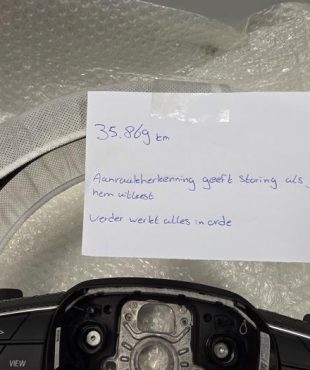 35.869 km
Aanraakherkenning geeft storing als je
hem uitleest
Verder werkt alles in orde
VIEW